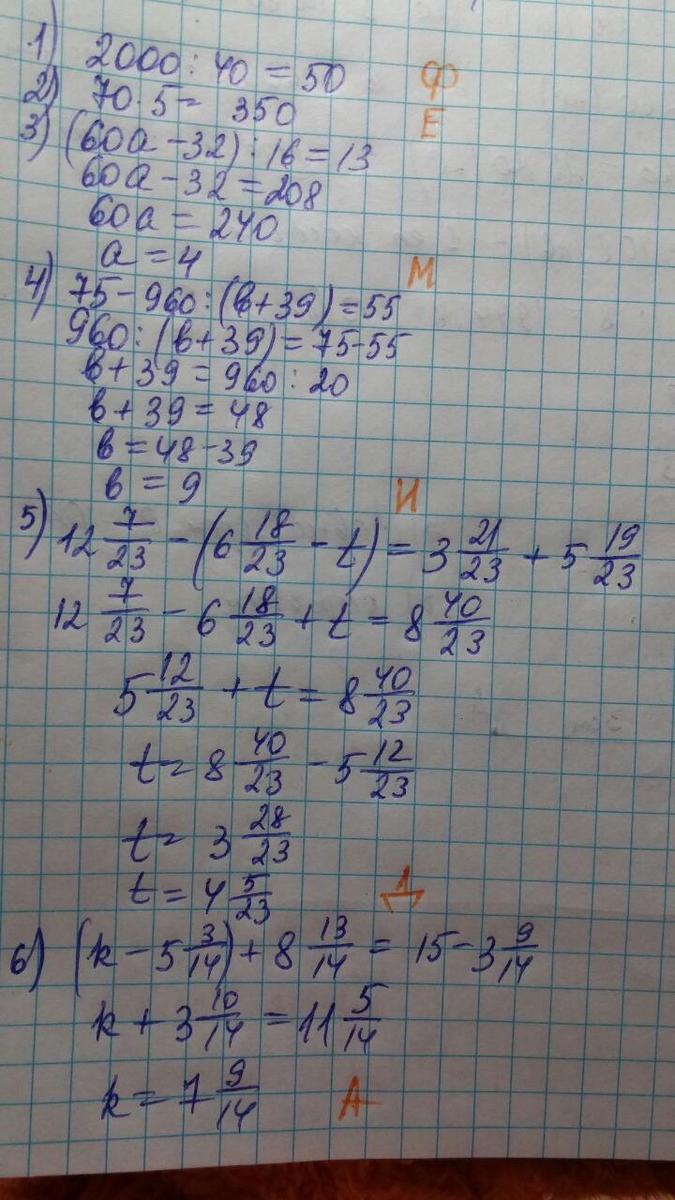 1) 2000 : 40 = 50 Ф
2) 70 · 5 = 350 Е
3) (60а - 32) : 16 = 13
60а - 32 = 208
60а = 240
а = 4 М
4) 75 - 960 : (в + 39) = 55
960 : (в + 39) = 75 - 55
в + 39 = 960 : 20
в + 39 = 48
в = 48 - 39
в = 9 И
5) 12 7/23 - (6 18/23 - t) = 3 21/23 + 5 19/23
12 7/23 - 6 18/23 + t = 8 40/23
5 12/23 + t = 8 40/23
t = 8 40/23 - 5 12/23
t = 3 28/23
t = 4 5/23 Д
6) (k - 5 3/14) + 8 13/14 = 15 - 3 9/14
k + 3 10/14 = 11 5/14
k = 7 9/14 А